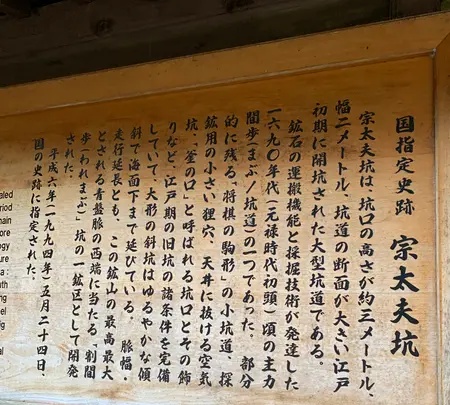 国指定史跡 宗太夫坑
宗太夫坑は、坑口の高さが約三メートル、
幅二メートル、坑道の断面が大きい江戸
初期に開坑された大型坑道である。
鉱石の運搬機能と採掘技術が発達した
一六九〇年代(元禄時代初頭)頃の主力
間歩(まぶ/坑道)の一つであった。 部分
的に残る「将棋の駒形」の小坑道、探
鉱用の小さい狸穴、天井に抜ける空気
坑、「釜の口」と呼ばれる坑口とその飾
りなど、江戸期の旧坑の諸条件を完備
していて、大形の斜坑はゆるやかな傾
斜で海面下まで延びている。 脈幅・
走行延長とも、この鉱山の最高最大
とされる青盤脈の西端に当たる「割間
歩(われまぶ)」坑の一鉱区として開発
された。
平成六年(一九九四年)五月二十四日、
国の史跡に指定された。
ealed
eriod
hain
ore
egy
ure
a :
ath
ng
vel
ig
al